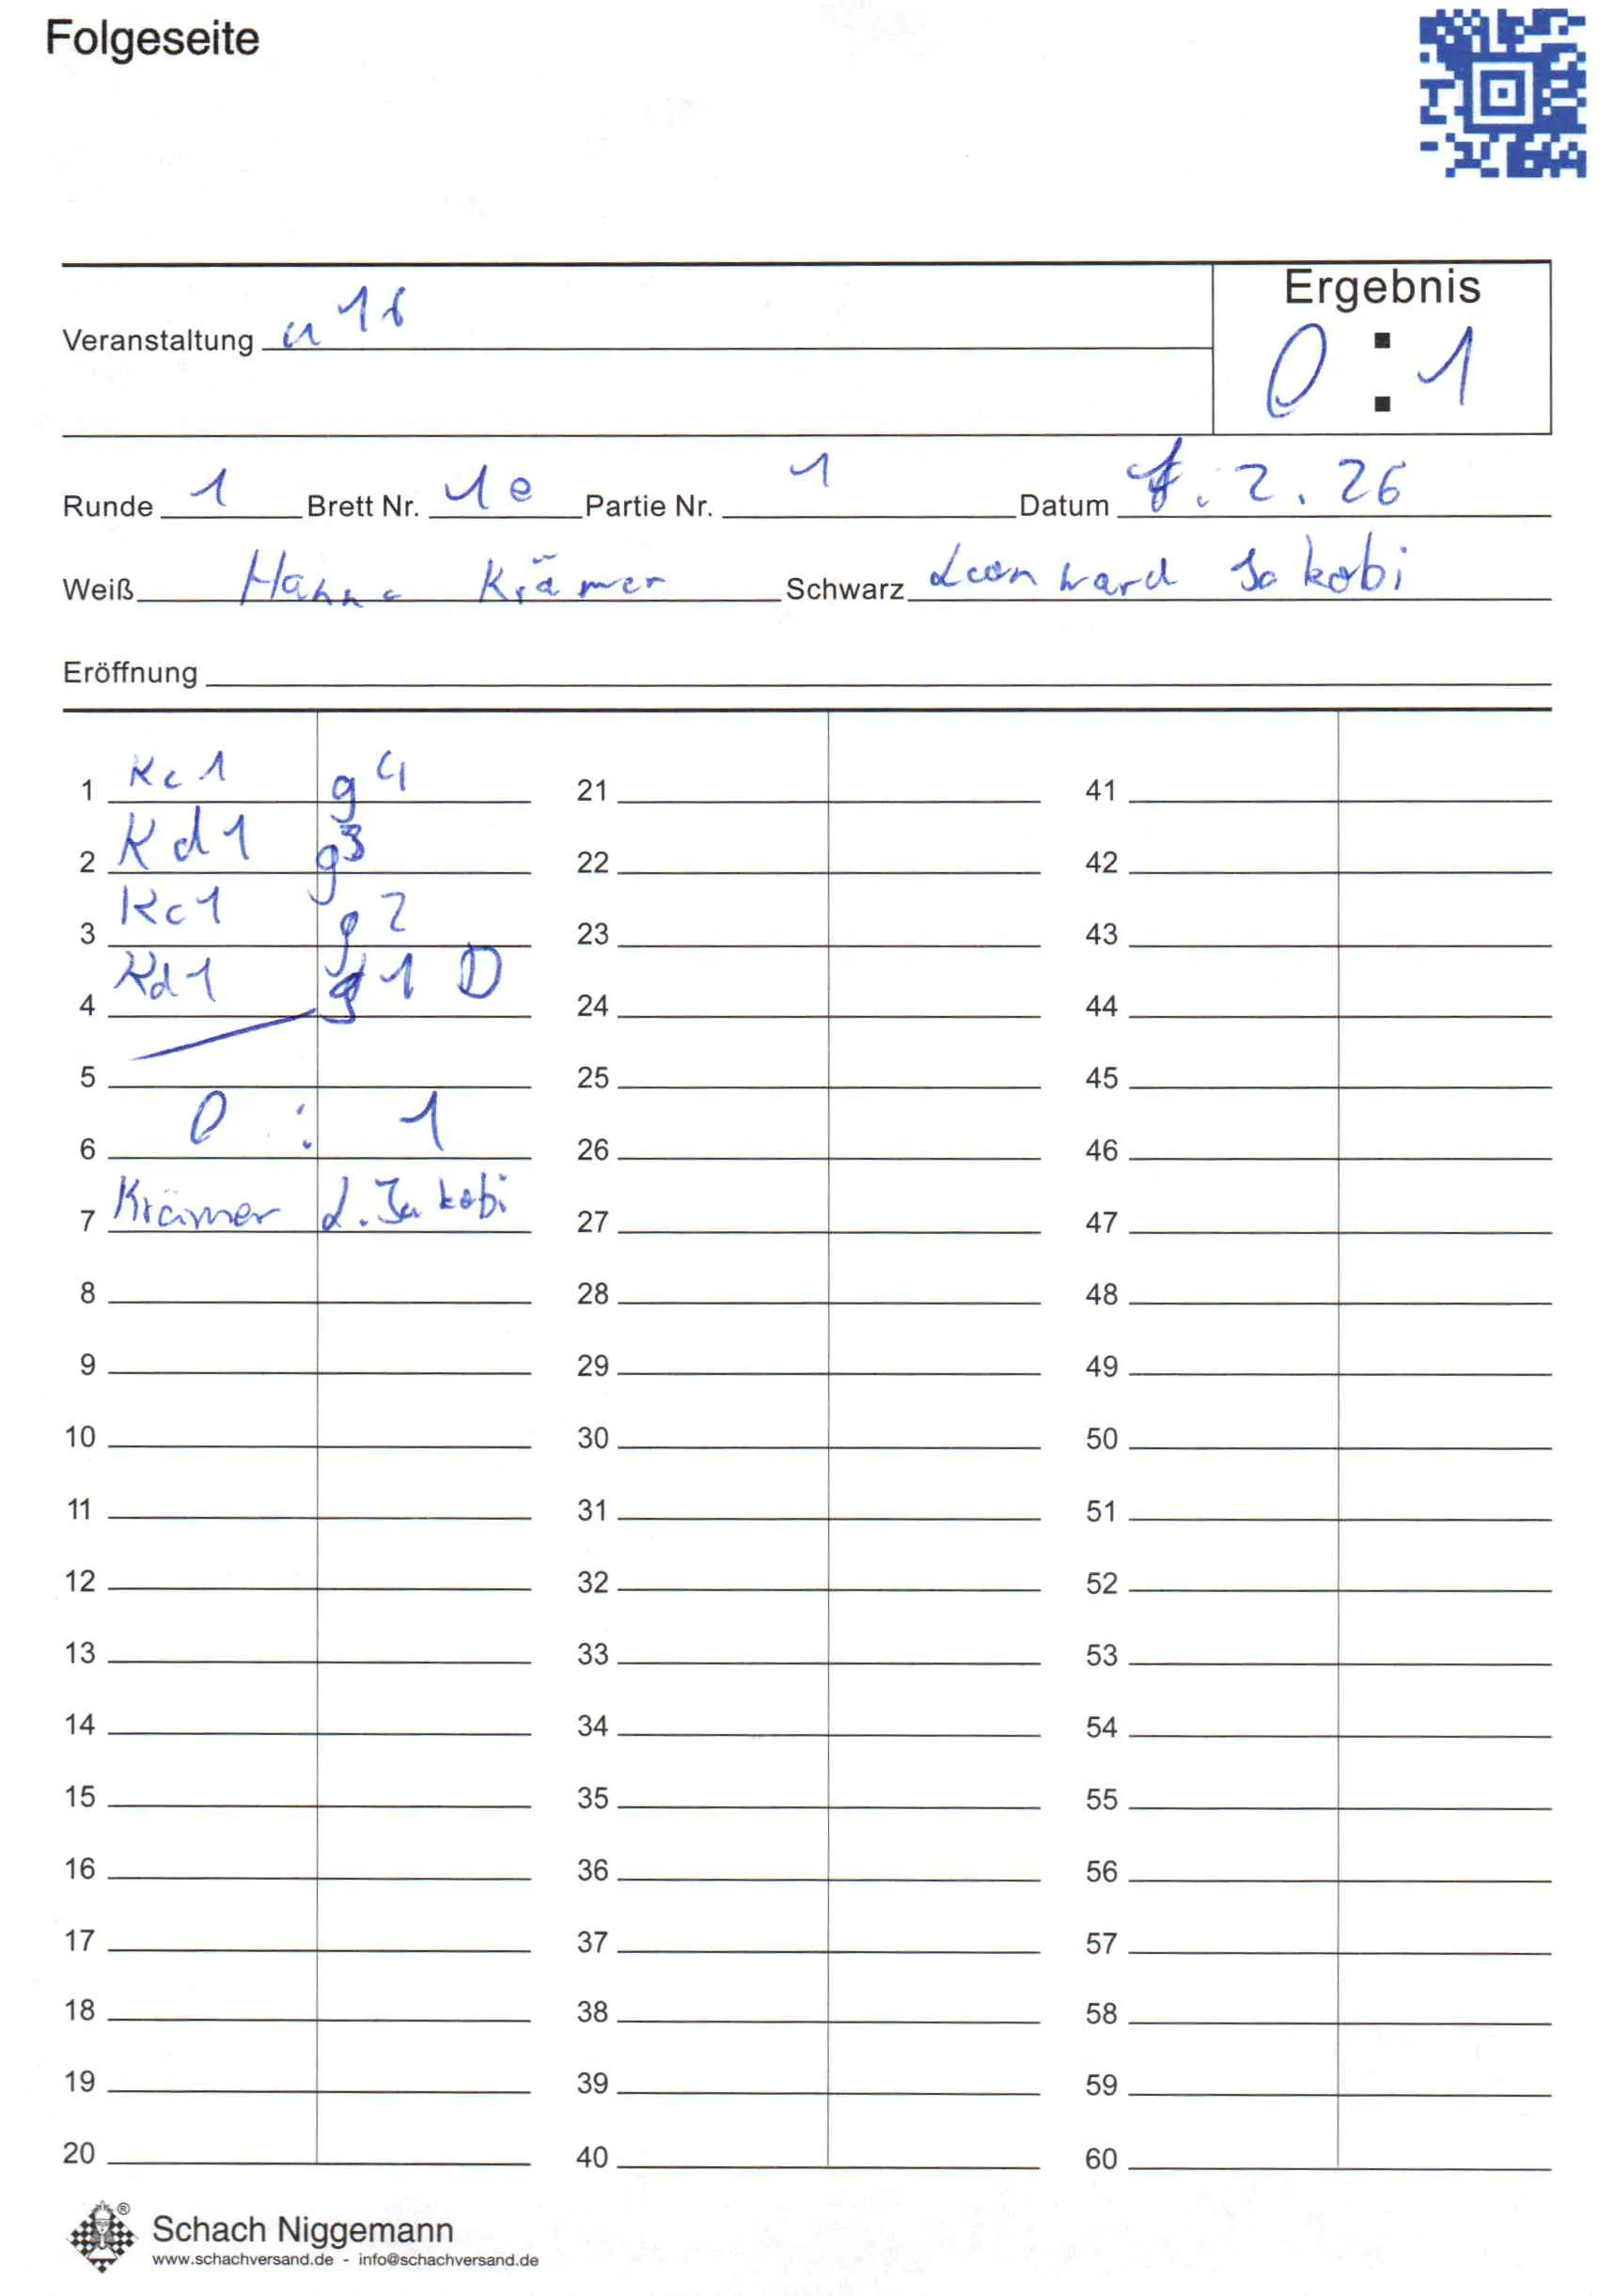 Folgeseite
Ergebnis
Veranstaltung u 16
0 : 1
Runde 1 Brett Nr. 1e Partie Nr. 1 Datum . 2 . 26
Weiß Krämer Schwarz Jakobi
Eröffnung
1 Kc1 g4 21 41
2 Kd1 g3 22 42
3 Kc1 g2 23 43
4 Kd1 g1 D 24 44
5 25 45
0 : 1
6 26 46
7 Krämer L. Jakobi 27 47
8 28 48
9 29 49
10 30 50
11 31 51
12 32 52
13 33 53
14 34 54
15 35 55
16 36 56
17 37 57
18 38 58
19 39 59
20 40 60
® Schach Niggemann
www.schachversand.de - info@schachversand.de